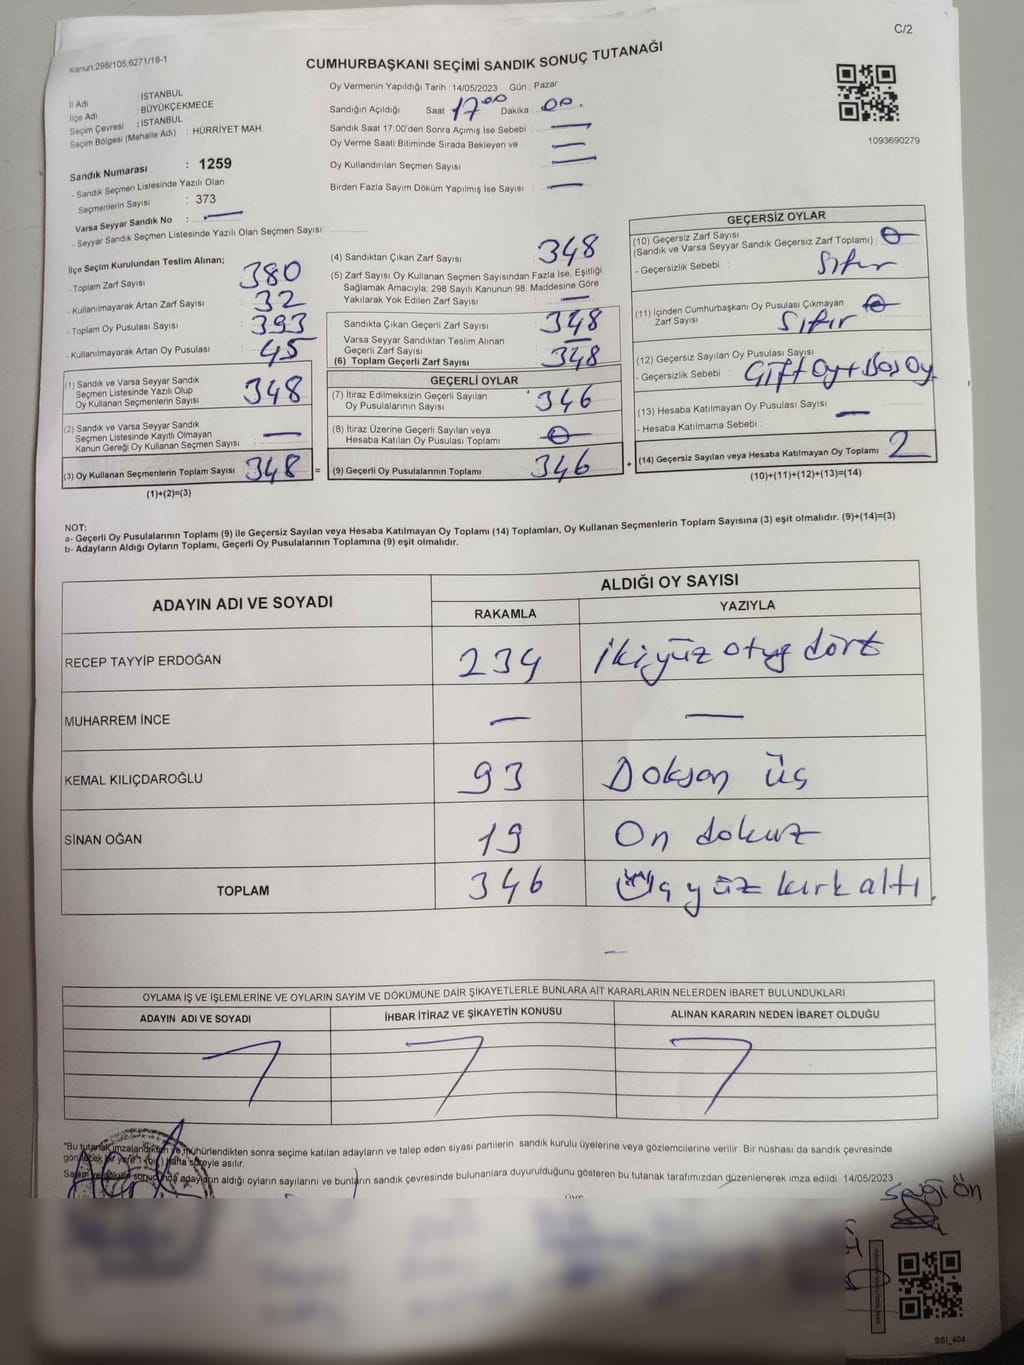 C/2
Kanun:298/105,6271/18-1
CUMHURBAŞKANI SEÇİMİ SANDIK SONUÇ TUTANAĞI
İl Adı : İSTANBUL
İlçe Adı : BÜYÜKÇEKMECE
Seçim Çevresi : İSTANBUL
Seçim Bölgesi (Mahalle Adı) : HÜRRİYET MAH.
Sandık Numarası : 1259
- Sandık Seçmen Listesinde Yazılı Olan
Seçmenlerin Sayısı : 373
Varsa Seyyar Sandık No : —
- Seyyar Sandık Seçmen Listesinde Yazılı Olan Seçmen Sayısı:
Oy Vermenin Yapıldığı Tarih : 14/05/2023 Gün : Pazar
Sandığın Açıldığı Saat 17 00 Dakika : 00.
Sandık Saat 17:00'den Sonra Açımış İse Sebebi : —
Oy Verme Saati Bitiminde Sırada Bekleyen ve —
Oy Kullandırılan Seçmen Sayısı —
Birden Fazla Sayım Döküm Yapılmış İse Sayısı : —
1093690279
İlçe Seçim Kurulundan Teslim Alınan;
- Toplam Zarf Sayısı : 380
- Kullanılmayarak Artan Zarf Sayısı : 32
- Toplam Oy Pusulası Sayısı : 393
- Kullanılmayarak Artan Oy Pusulası : 45
(1) Sandık ve Varsa Seyyar Sandık
Seçmen Listesinde Yazılı Olup
Oy Kullanan Seçmenlerin Sayısı : 348
(2) Sandık ve Varsa Seyyar Sandık
Seçmen Listesinde Kayıtlı Olmayan
Kanun Gereği Oy Kullanan Seçmen Sayısı : —
(3) Oy Kullanan Seçmenlerin Toplam Sayısı : 348 =
(1)+(2)=(3)
(4) Sandıktan Çıkan Zarf Sayısı : 348
(5) Zarf Sayısı Oy Kullanan Seçmen Sayısından Fazla İse, Eşitliği
Sağlamak Amacıyla; 298 Sayılı Kanunun 98. Maddesine Göre
Yakılarak Yok Edilen Zarf Sayısı : —
Sandıkta Çıkan Geçerli Zarf Sayısı : 348
Varsa Seyyar Sandıktan Teslim Alınan
Geçerli Zarf Sayısı : —
(6) Toplam Geçerli Zarf Sayısı : 348
GEÇERLİ OYLAR
(7) İtiraz Edilmeksizin Geçerli Sayılan
Oy Pusulalarının Sayısı : 346
(8) İtiraz Üzerine Geçerli Sayılan veya
Hesaba Katılan Oy Pusulası Toplamı : 0
(9) Geçerli Oy Pusulalarının Toplamı : 346 +
GEÇERSİZ OYLAR
(10) Geçersiz Zarf Sayısı
(Sandık ve Varsa Seyyar Sandık Geçersiz Zarf Toplamı) : 0
- Geçersizlik Sebebi : Sıfır
(11) İçinden Cumhurbaşkanı Oy Pusulası Çıkmayan
Zarf Sayısı : 0 Sıfır
(12) Geçersiz Sayılan Oy Pusulası Sayısı
- Geçersizlik Sebebi : Çift Oy + Boş Oy
(13) Hesaba Katılmayan Oy Pusulası Sayısı : —
- Hesaba Katılmama Sebebi :
(14) Geçersiz Sayılan veya Hesaba Katılmayan Oy Toplamı : 2
(10)+(11)+(12)+(13)=(14)
NOT:
a- Geçerli Oy Pusulalarının Toplamı (9) ile Geçersiz Sayılan veya Hesaba Katılmayan Oy Toplamı (14) Toplamları, Oy Kullanan Seçmenlerin Toplam Sayısına (3) eşit olmalıdır. (9)+(14)=(3)
b- Adayların Aldığı Oyların Toplamı, Geçerli Oy Pusulalarının Toplamına (9) eşit olmalıdır.
ADAYIN ADI VE SOYADI
ALDIĞI OY SAYISI
RAKAMLA YAZIYLA
RECEP TAYYİP ERDOĞAN 234 İkiyüz otuz dört
MUHARREM İNCE — —
KEMAL KILIÇDAROĞLU 93 Doksan üç
SİNAN OĞAN 19 On dokuz
TOPLAM 346 Üç yüz kırk altı.
OYLAMA İŞ VE İŞLEMLERİNE VE OYLARIN SAYIM VE DÖKÜMÜNE DAİR ŞİKAYETLERLE BUNLARA AİT KARARLARIN NELERDEN İBARET BULUNDUKLARI
ADAYIN ADI VE SOYADI İHBAR İTİRAZ VE ŞİKAYETİN KONUSU ALINAN KARARIN NEDEN İBARET OLDUĞU
"Bu tutanak imzalandıktan ve mühürlendikten sonra seçime katılan adayların ve talep eden siyasi partilerin sandık kurulu üyelerine veya gözlemcilerine verilir. Bir nüshası da sandık çevresinde
görülecek bir yere 1 (bir) hafta süreyle asılır.
Sayım ve döküm sonucunda adayların aldığı oyların sayılarını ve bunların sandık çevresinde bulunanlara duyurulduğunu gösteren bu tutanak tarafımızdan düzenlenerek imza edildi 14/05/2023
SSİ_404